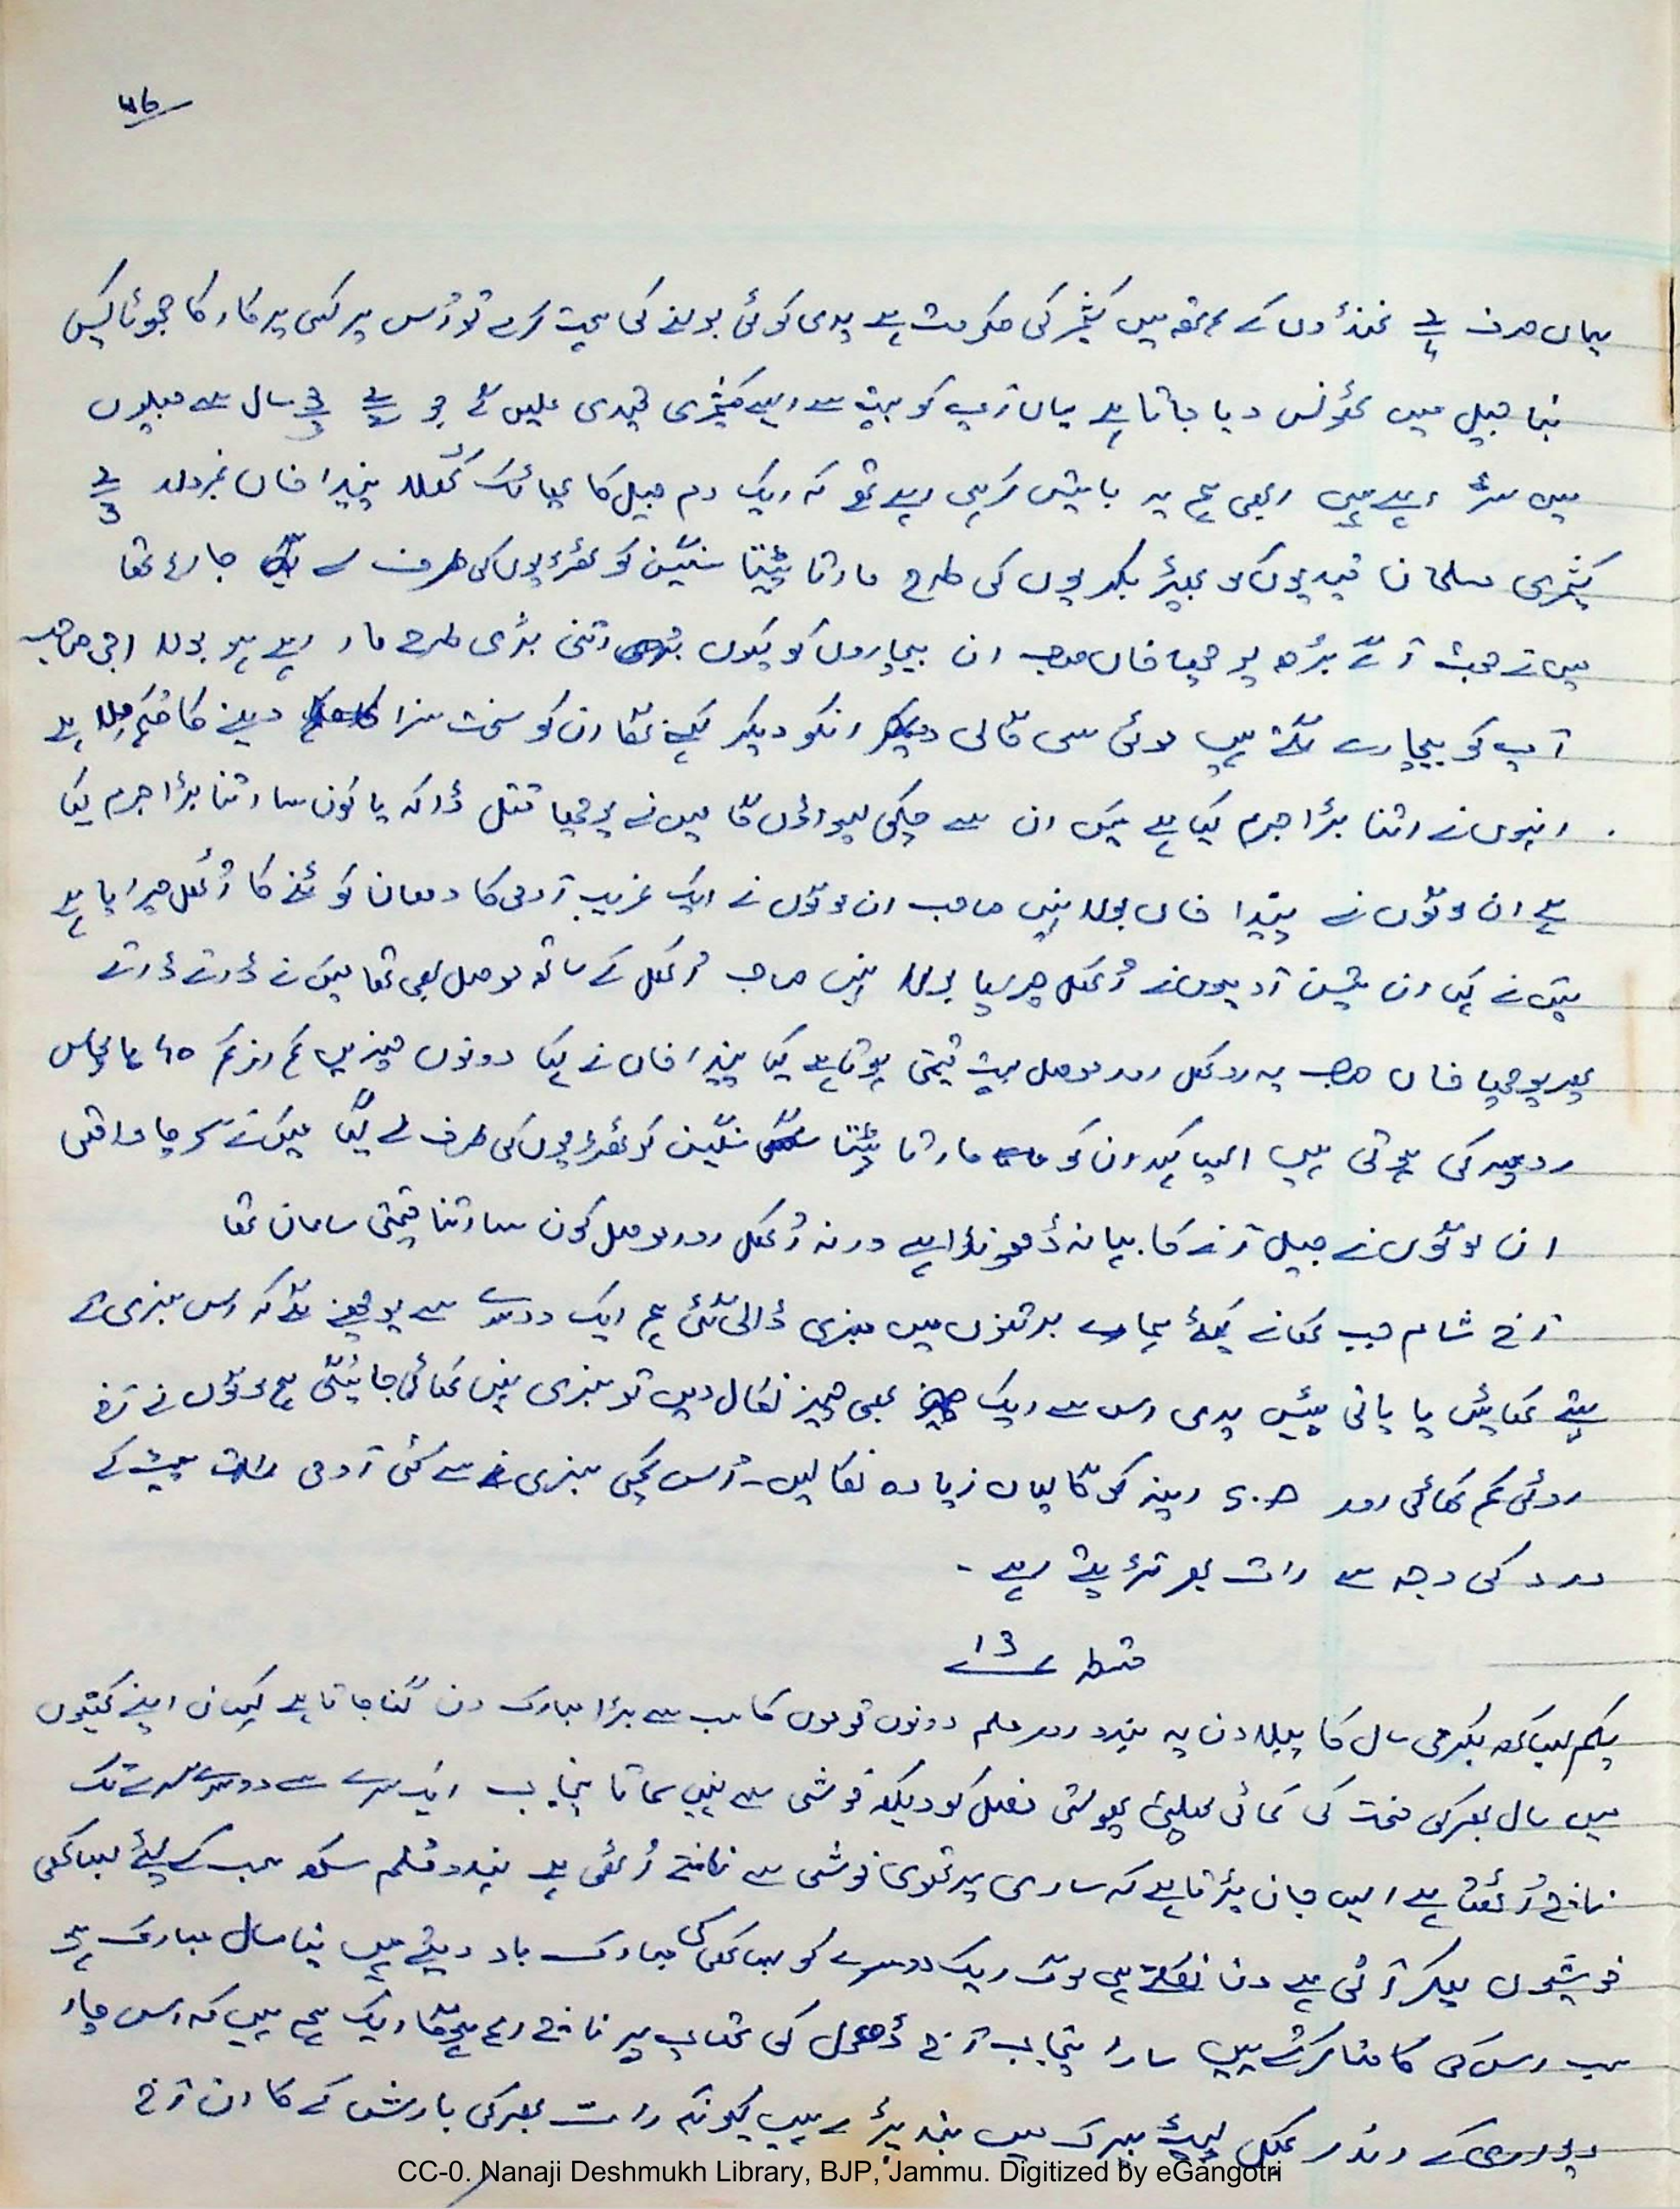 یہاں صرف غنڈوں کے ہاتھ میں کشمیر کی حکومت ہے یدی کوئی بولنے کی ہمت کرے تو اُس پر کسی پرکار کا جھوٹا کیس
بنا جیل میں ٹھونس دیا جاتا ہے یہاں آپ کو بہت سے ایسے کشمیری قیدی ملیں گے جو سال سے جیلوں
میں سڑ رہے ہیں ابھی ہم یہ باتیں کر ہی رہے تھے کہ ایک دم جیل کا پھاٹک کُھلا پنڈا خان نمبردار
کشمیری مسلمان قیدیوں کو بھیڑ بکریوں کی طرح مارتا پیٹتا سنگین کوٹھڑیوں کی طرف لے جا رہا تھا
میں نے جھٹ آگے بڑھ پوچھا خان صاحب ان بیچاروں کو کیوں اتنی بڑی طرح مار رہے ہو بولا اجی صاحب
آپ کو بیچارے لگتے ہیں موٹی سی گالی دیکر انکو دیکر کہنے لگا ان کو سخت سزا دینے کا حکم ملا ہے
انہوں نے اتنا بڑا جرم کیا ہے میں ان سے چکی پسواؤں گا میں نے پوچھا قتل ڈاکہ یا کون سا اتنا بڑا جرم کیا
ہے ان لوگوں نے پنڈا خان بولا نہیں صاحب ان لوگوں نے ایک غریب آدمی کا دھان کوٹنے کا اُکھل چرایا ہے
میں نے کہا ان تین آدمیوں نے اُکھل چرایا بولا نہیں صاحب اُکھل کے ساتھ موصل بھی تھا میں نے ڈرتے ڈرتے
پھر پوچھا خان صاحب یہ اوکھل اور موصل بہت قیمتی ہوتا ہے کیا پنڈا خان نے کہا دونوں چیزیں کم از کم 40 یا پچاس
روپیہ کی ہوتی ہیں ایسا کہہ ان کو مارتا پیٹتا سنگین کوٹھڑیوں کی طرف لے گیا میں نے سوچا واقعی
ان لوگوں نے جیل آنے کا بہانہ ڈھونڈا ہے ورنہ اُکھل اور موصل کون سا اتنا قیمتی سامان تھا
آج شام جب کھانے کیلئے ہمارے برتنوں میں سبزی ڈالی گئی ہم ایک دوسرے سے پوچھنے لگے کہ اس سبزی کے
پتے کھائیں یا پانی پیئیں یدی اس سے ایک بھی چیز نکال دیں تو سبزی نہیں کھائی جائیگی ہم لوگوں نے آج
روٹی کم کھائی اور S.H رینہ کو گالیاں زیادہ نکالیں۔ اُس کچی سبزی سے کئی آدمی پیٹ کے
درد کی وجہ سے رات بھر تڑپتے رہے۔
قسط 13
یکم بیساکھ بکرمی سال کا پہلا دن یہ ہندو اور مسلم دونوں قوموں کا سب سے بڑا مبارک دن گنا جاتا ہے کسان اپنے کھیتوں
میں سال بھر کی محنت کی کمائی پھلتی پھولتی فصل کو دیکھ خوشی سے نہیں سماتا پنجاب ایک سرے سے دوسرے سرے تک
ناچ اُٹھتا ہے ایسے جان پڑتا ہے کہ ساری پرتھوی خوشی سے ناچنے اُٹھی ہے ہندو مسلم سکھ سب کے لیئے بیساکھی
خوشیوں لیکر آتی ہے دن نکلتے ہی لوگ ایک دوسرے کو بیساکھی کی مبارک باد دیتے ہیں نیا سال مبارک ہو
سب اس کی کامنا کرتے ہیں سارا پنجاب آج ڈھول کی تھاپ پر ناچ رہا ہوگا ایک ہم ہیں کہ اس چار
دیواری کے اندر کمبل لپیٹے بیرک میں بند پڑے ہیں کیونکہ رات بھر کی بارش کے کارن آج
CC-0. Nanaji Deshmukh Library, BJP, Jammu. Digitized by eGangotri